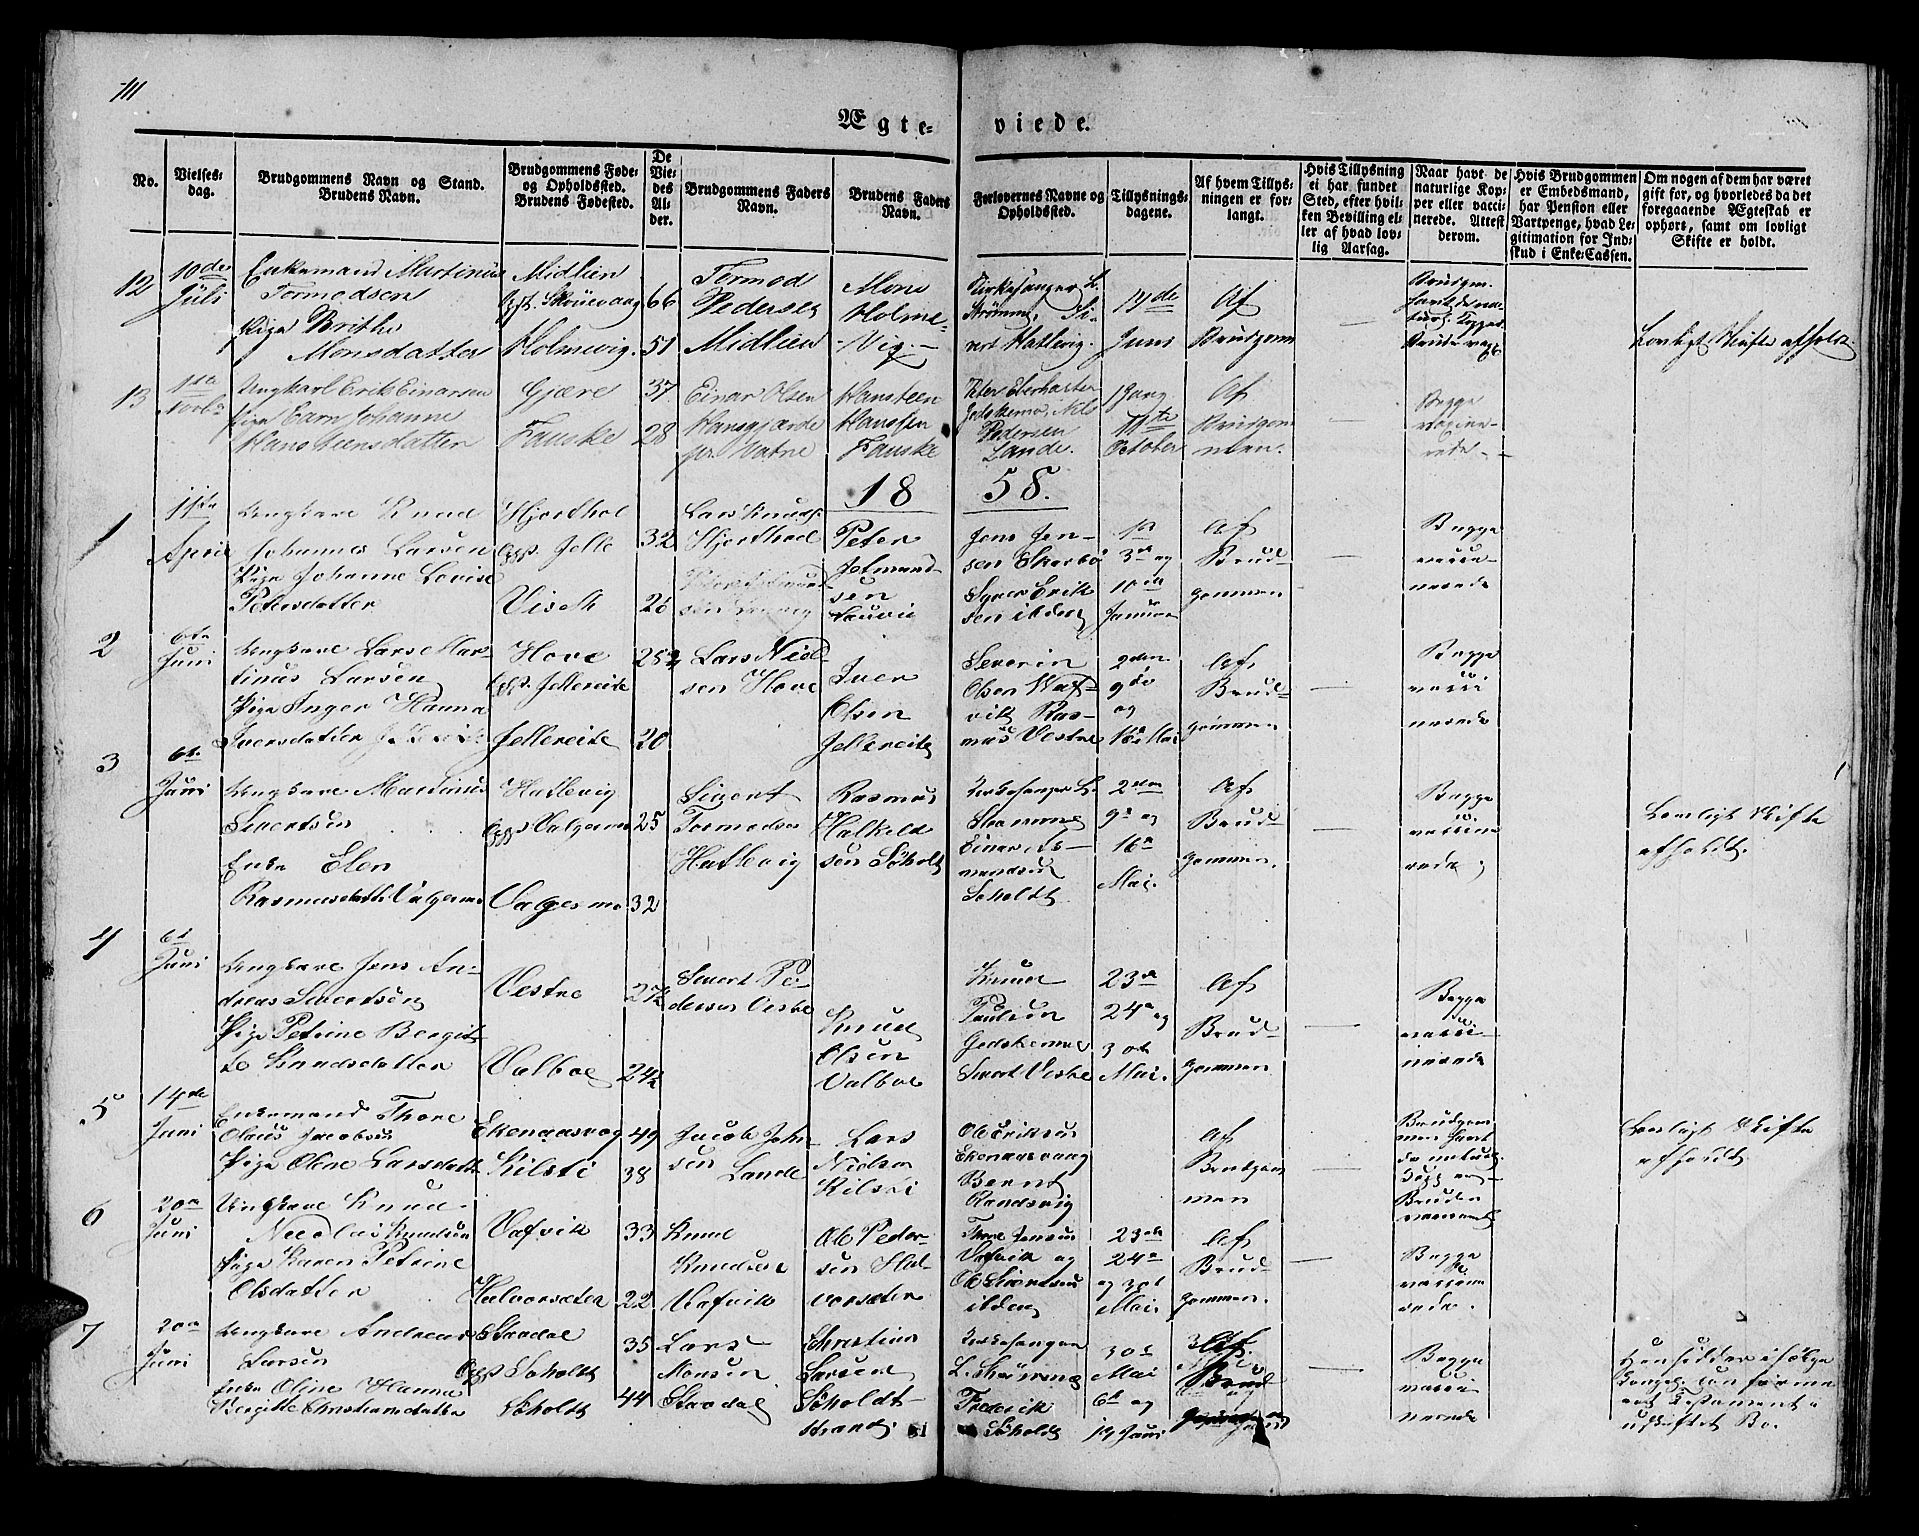 111
Ægte-
viede.
No.
Vielses-
dag.
Brudgommens Navn og Stand.
Brudens Navn.
Brudgommens Føde-
og Opholdssted.
Brudens Fødested.
De
Vie-
des
Al-
der.
Brudgommens Faders
Navn.
Brudens Faders
Navn.
Forlovernes Navne og
Opholdssted.
Tillysnings-
dagene.
Af hvem Tillys-
ningen er for-
langt.
Hvis Tillysning
ei har fundet
Sted, efter hvil-
ken Bevilling el-
ler af hvad lov-
lig Aarsag.
Naar havt de
naturlige Kop-
per eller vacci-
nerede. Attest
derom.
Hvis Brudgommen
er Embedsmand,
har Pension eller
Vartpenge, hvad Le-
gitimation for Ind-
skud i Enke-Cassen.
Om nogen af dem har været
gift før, og hvorledes da det
foregaaende Ægteskab er
ophørt, samt om lovligt
Skifte er holdt.
12
10de
Juli
Enkemand Martinus
Tormodsen
Pige Brithe
Monsdatter
Midlien
Holmevig
66
51
Tormod
Pedersen
Midlien
Mons
Holme-
Vig.
Kirkesanger L.
Strømme, Si-
vert Hatlevig
14de
Juni
Af
Brudgom
Lovligt Skifte afholdt.
13
1ste
Novbr
Ungkarl Erik Einarsen
Pige Karn Johanne
Hanssteensdatter
Gjære
Fauske
37
28
Einar Olsen
Hansgjærde
pr. Vatne
Hansteen
Hanssen
Fauske
Peter
Gjedskemo, Nils
Pedersen
Lande.
1 Gang
11te
October
Af
Brudgom
men.
Begge
vaxine-
rede
18 58.
1
11te
April
Ungkarl Knud
Johannes Larsen
Pige Johanne Lovise
Petersdatter
Hjorthol
Opp. Jelle
Viseth
32
26
Lars Knuds.
Hjorthol
Peter
Jetmund-
sen
Jens Jen-
sen Skarbø
Syver Erik
sen ibdm
1st
3de og
10de
Januar
Af
Brud-
gommen
Begge
vacci-
nerede
2
6te
Juni
Ungkarl Lars Mar-
tinus Larsen
Pige Inger Hanna
Iversdatter
Hove
Opp. Jellereite
Jellereite
25½
20
Lars Niel-
sen Hove
Iver
Olsen
Jellereite
Severin
Olsen Vaf-
vik Ras-
mus Vestre
2den
9de
og
16de Mai
Af
Brud-
gommen
Begge
vacci
nerede
3
6te
Juni
Ungkarl Martinus
Sivertsen
Enke Elen
Rasmusdatter Valgermo
Hatlevig
Opp. Valgermo
Valgermo
25
32
Sivert
Tormodsen
Hatlevig
Rasmus
Halkild
sen Søholt
Kirkesanger L.
Strømme
Einar As-
mundsen
Søholdt
2den
9de og
16de
Mai.
Af
Brud-
gommen.
Begge
vaccine
rede
Lovligt Skifte
afholdt.
4
6te
Juni
Ungkarl Jens An-
dreas Sivertsen
Pige Petrine Bergit-
te Knudsdatter
Vestre
Valboe
27½
24½
Sivert Pe-
dersen Vestre
Knud
Olsen
Valboe
Knud
Paulsen
Gjedskemoe
Sivert Vestre
23de
24de og
30te
Mai.
Af
Brud-
gommen
Begge
vacci-
nerede
5
14de
Juni
Enkemand Thore
Olaus Jacobsen
Pige Oline Larsdatter
Ekenaasvog
Kilsti
49
38
Jacob Joh-
sen Lande
Lars
Nielsen
Kilsti
Ole Eriksen
Ekenaasvaag
Bernt
Randsvig
Af
Brudgom
men
Brudgom
men havt
de naturl.
Bruden
vaccineret
Lovligt Skifte
afholdt
6
20de
Juni
Ungkarl Knud
Nicolai Knudsen
Pige Karen Petrine
Olsdatter
Vafvik
Halvorsæter
33
22
Knud
Knudsen
Vafvik
Ole Peder-
sen Hal-
vorsæter
Thore Jensen
Vafvik og
Ole Sivertsen
ibdm
23de
24de
og 30te
Mai.
Af
Brud-
gommen.
Begge
vaccine
rede.
7
20de
Juni
Ungkarl Andreas
Larsen
Enke Oline Hanna
Bergitte Christiansdatter
Stavdal
Opp. Søholdt
Søholdt
35
44
Lars
Monsen
Stavdal
Christian
Larsen
Søholdt-
strand
Kirkesanger
L. Strømme
Frederik
Søholdt
30te
Mai
6te og
14 Juni
Af
Brud
Begge
vacci-
nerede
Hensidder i følge
Kongel. Confirme-
ret Testament i
uskiftet Bo.